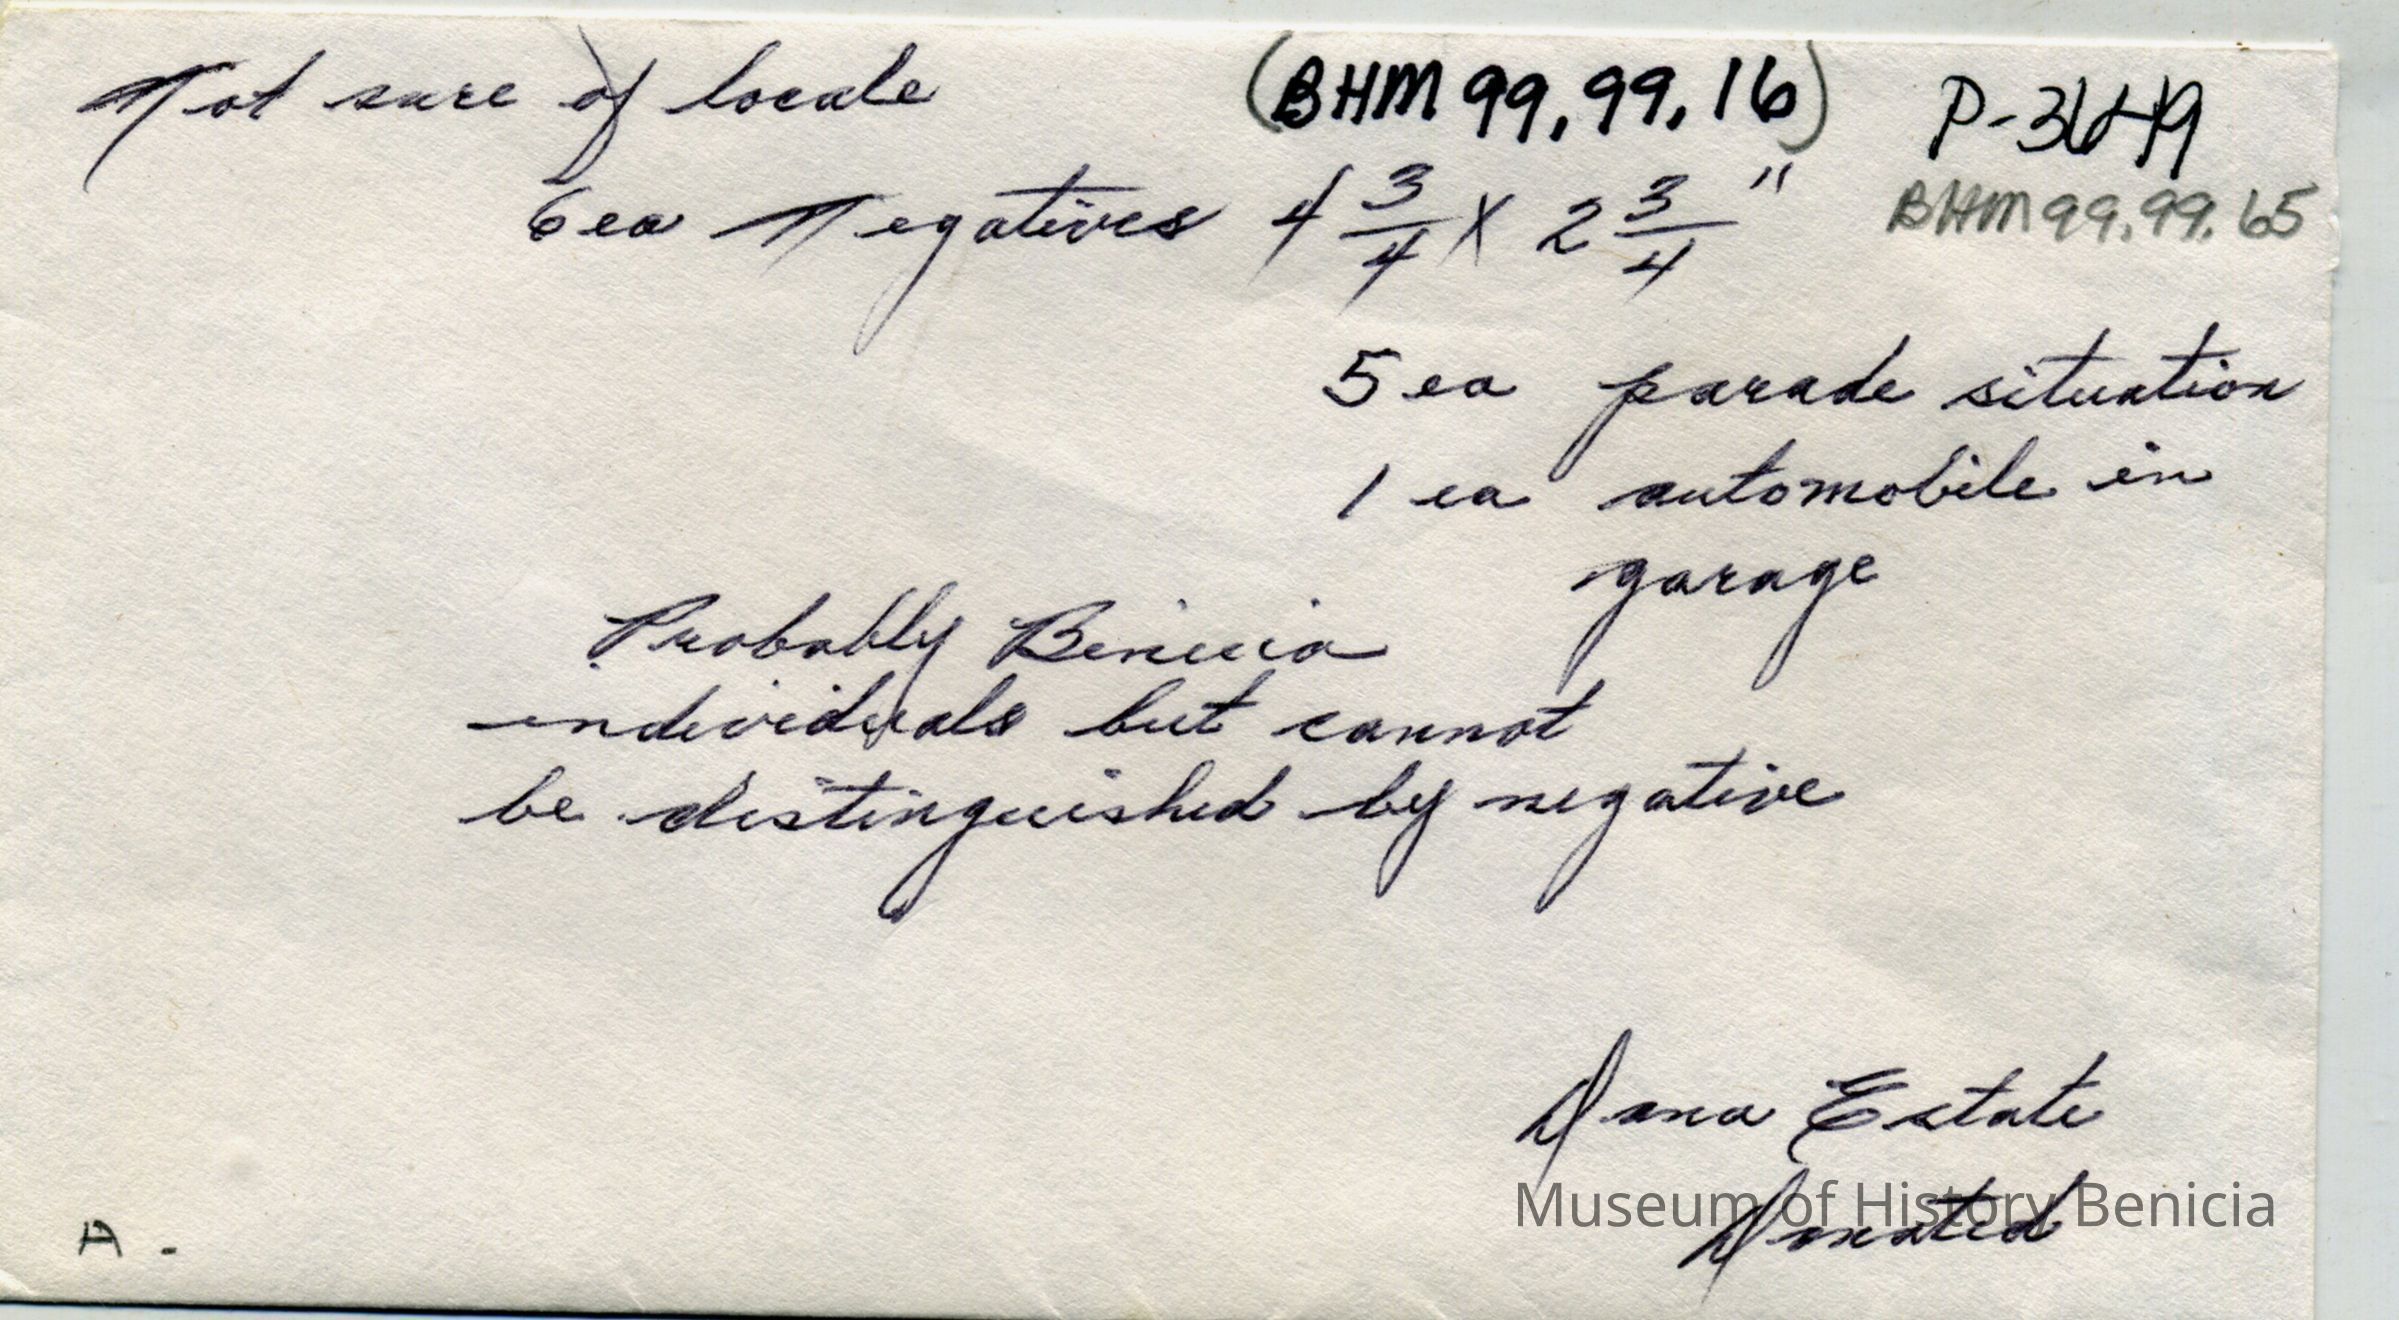 Not sure of locale
(BHM 99.99.16)
BHM 99.99.65
6 ea Negatives 4 3/4 x 2 3/4 "
5 ea parade situation
1 ea automobile in
garage
Probably Benicia
individuals but cannot
be distinguished by negative
Dana Estate
Donated
Museum of History Benicia
A -